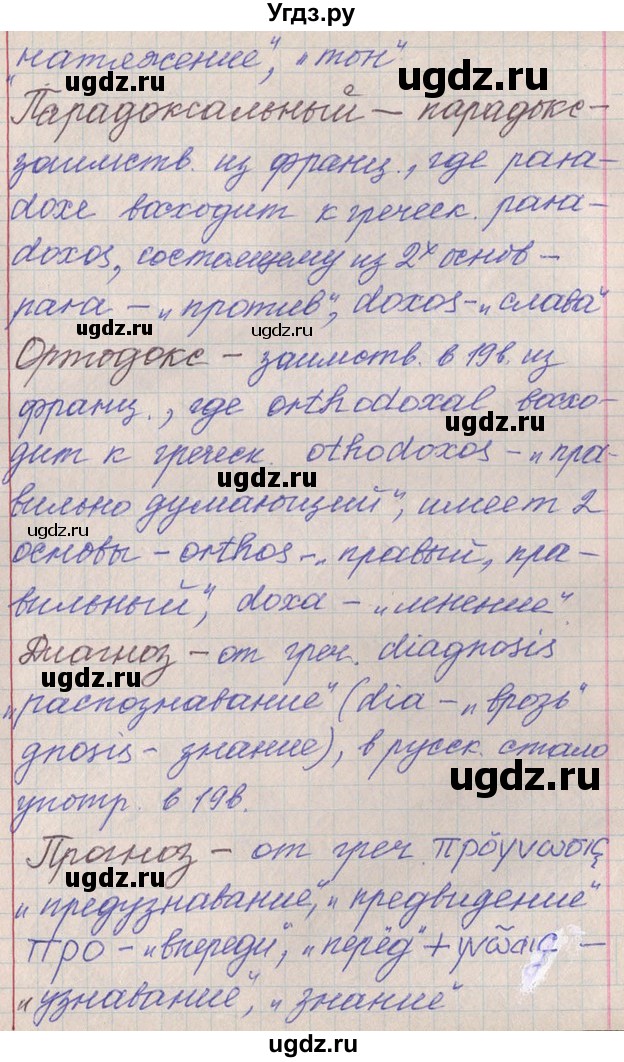 Угдз.ру
„натяжение", „тон"
ugdz.ru
ugdz.ru
Парадоксальный – парадокс –
заимств. из франц., где para-
ugdz.ru
doxe восходит к греческ. para-
doxos, состоящему из 2х основ –
para – „против", doxos – „слава"
ugdz.ru
ugdz.ru
Ортодокс – заимств. в 19в. из
франц., где orthodoxal восхо-
дит к греческ. othodoxos – „пра-
ugdz.ru
вильно думающий", имеет 2
ugdz.ru
основы – orthos – „правый, пра-
вильный", doxa – „мнение"
Диагноз – от греч. diagnosis
ugdz.ru
„распознавание" (dia – „врозь"
gnosis – знание), в русск. стало
ugdz.ru
употр. в 19в.
Прогноз – от греч. πρόγνωσις
ugdz.ru
„предузнавание", „предвидение"
προ – „впереди", „перёд" + γνῶσις –
„узнавание", „знание"
ugdz.ru
ugdz.ru